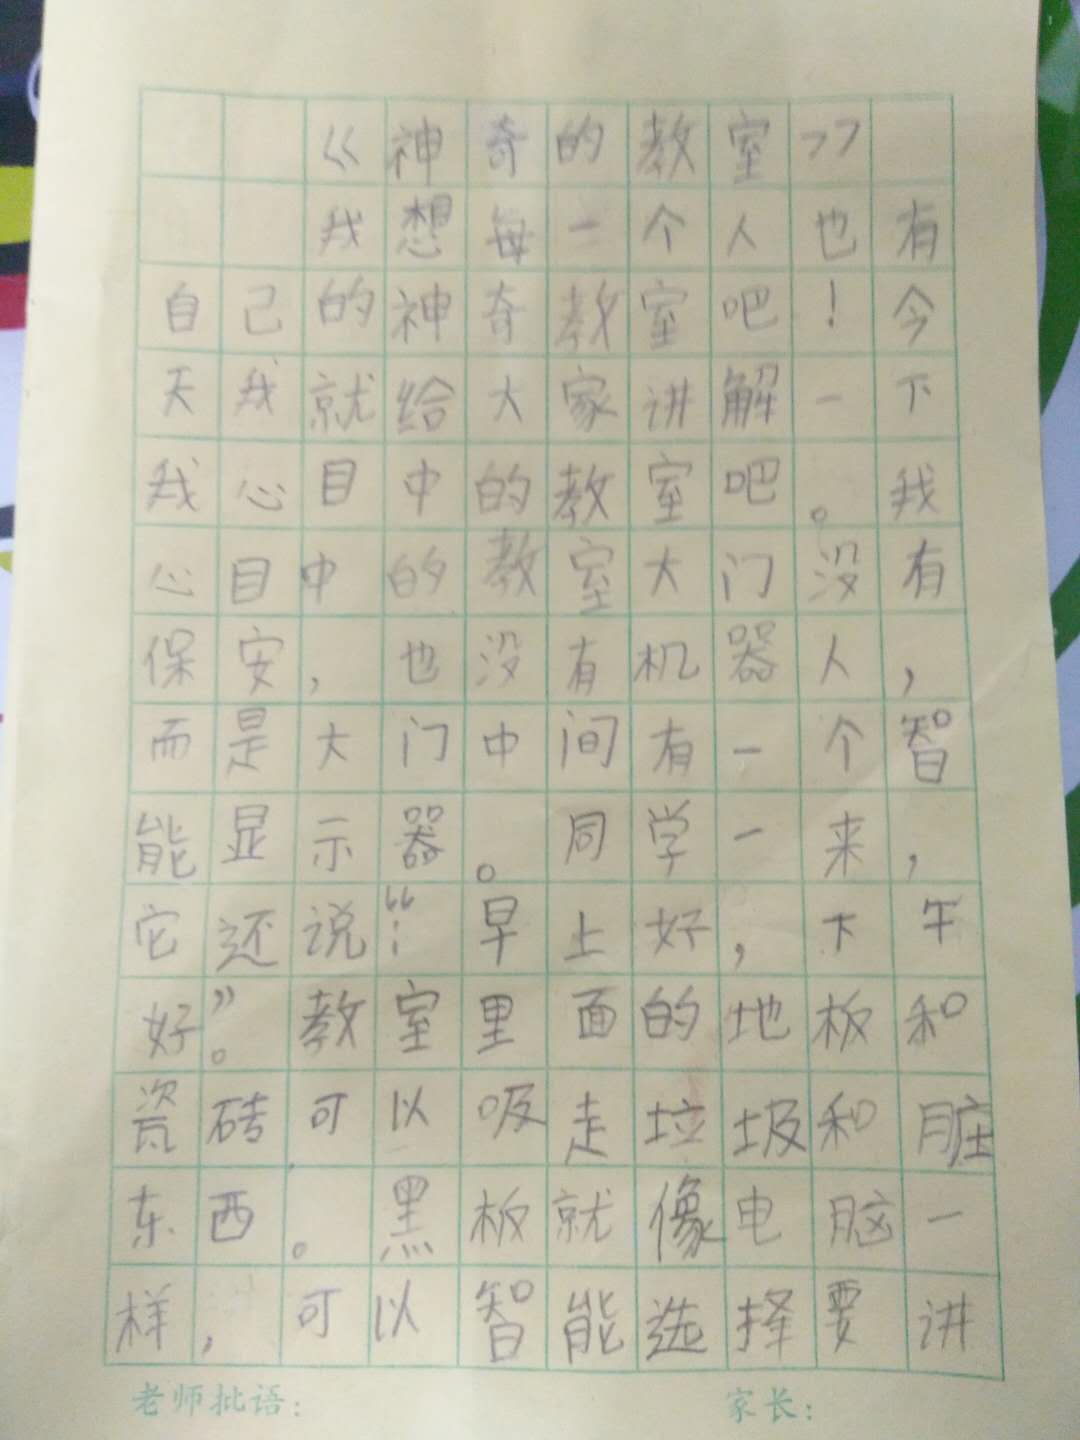 《神奇的教室》
我想每一个人也有
自己的神奇教室吧！今
天我就给大家讲解一下
我心目中的教室吧。我
心目中的教室大门没有
保安，也没有机器人，
而是大门中间有一个智
能显示器。同学一来，
它还说：“早上好，下午
好”。教室里面的地板和
瓷砖可以吸走垃圾和脏
东西。黑板就像电脑一
样，可以智能选择要讲
老师批语： 家长：